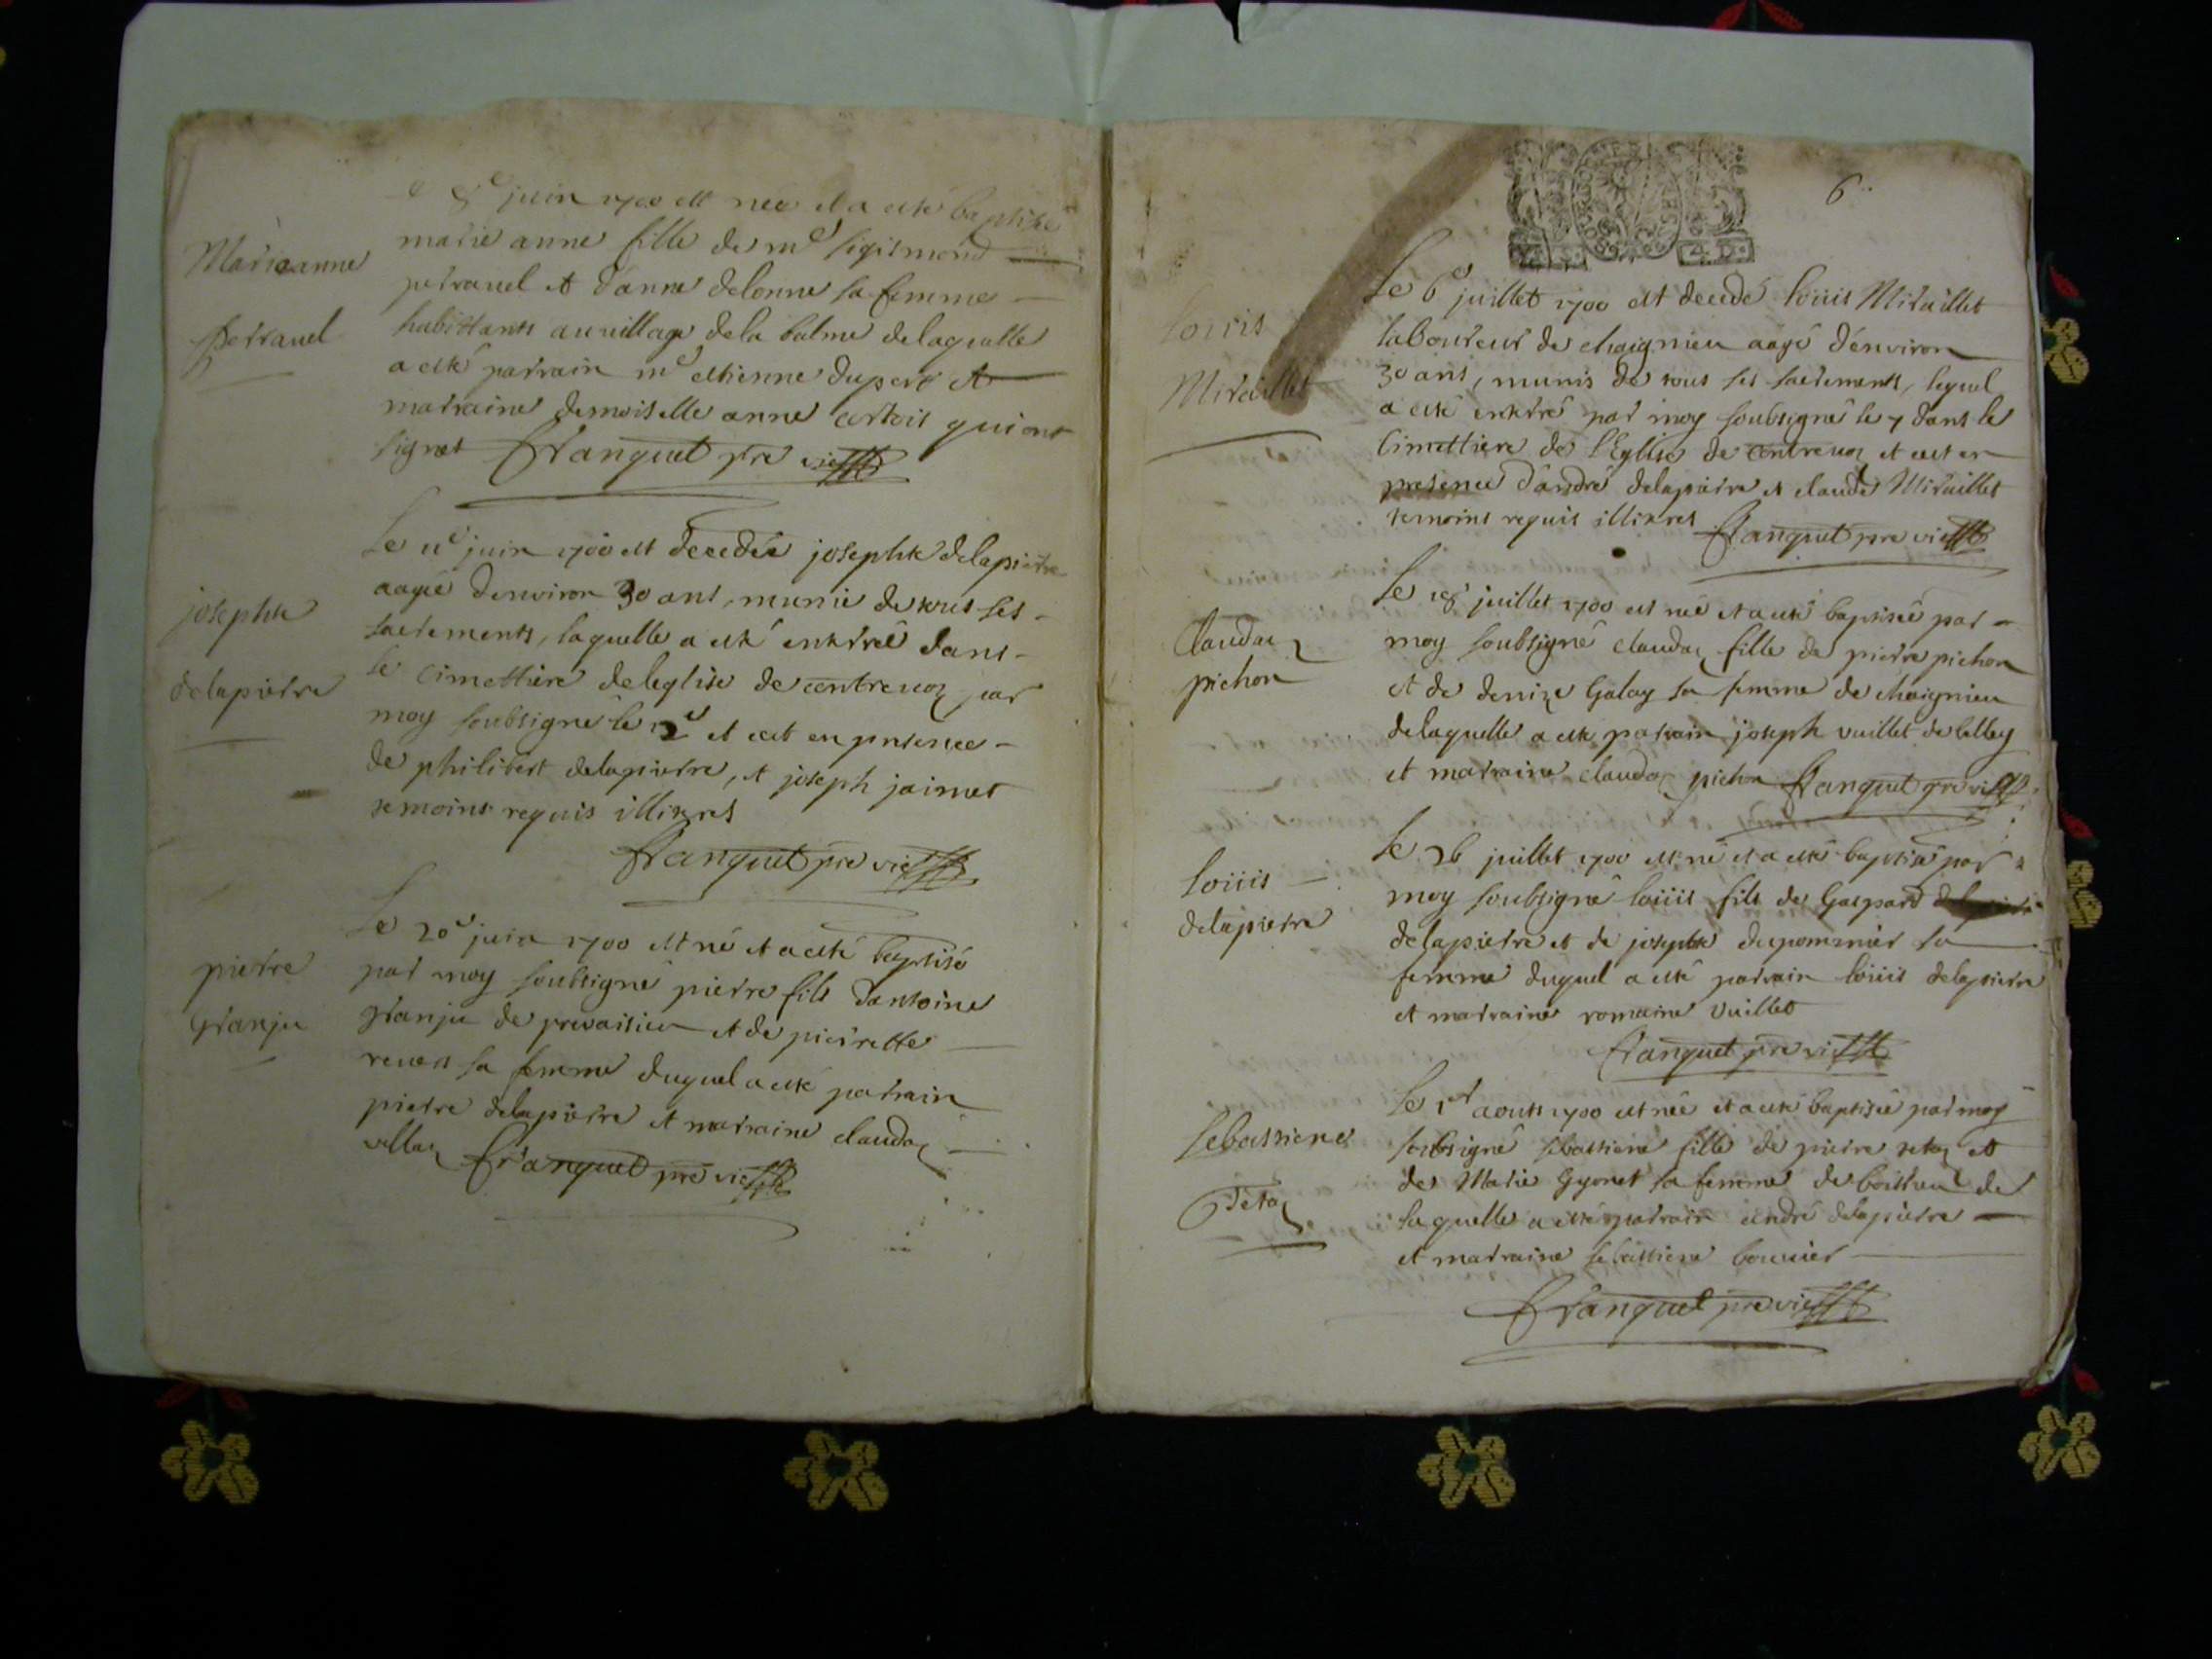 Marieanne
petrauel
8e juin 1700 est née et a esté baptisée
marie anne fille de me sigismond
petrauel et d'anne delonne sa femme
habittants au village de la balme de laquelle
a esté parrain me estienne dupert et
marraine demoiselle anne certois qui ont
signes Franquet pre vic
josephte
delapierre
Le 11e juin 1700 est decedée josephte delapierre
aagée denviron 30 ans, munie de tous ses
sacrements, laquelle a esté enterreé dans
le cimettiere de leglise de contreuoz par
moy soubsigné le 12e et cest en presence
de philibert delapierre, et joseph jaimet
temoins requis illitres
Franquet pre vic
pierre
granju
Le 20e juin 1700 est né et a esté baptisé
par moy soubsigné pierre fils dantoine
granju de prevaisieu et de pierrette
sa femme duquel a esté parrain
pierre delapierre et marraine claudaz
Franquet pre vic
6
4 D.
Louis
Miraillet
Le 6e juillet 1700 est decedé loüis Miraillet
laboureur de chaignieu aagé d'environ
30 ans, munis de tous ses sacrements, lequel
a esté enterré par moy soubsigné le 7 dans le
cimettiere de l'Eglise de contreuoz et cest en
presence d'andré delapierre et claude Miraillet
temoins requis illitres Franquet pre vic
Claudaz
pichon
Le 18 juillet 1700 est née et a esté baptisée par
moy soubsigné claudaz fille de pierre pichon
et de denize Galay sa femme de chaignieu
delaquelle a esté parrain joseph vuillet de belley
et marraine claudaz pichon Franquet pre vic
Loüis
delapierre
Le 26 juillet 1700 est né et a esté baptisé par
moy soubsigné loüis fils de Gaspard
delapierre et de josephte dupommier sa
femme duquel a esté parrain loüis delapierre
et marraine romaine Vuillet
Franquet pre vic
Sebastiene
Tetaz
Le 1er aoust 1700 est née et a esté baptisée par moy
soubsigné sebastiene fille de pierre tetaz et
de Marie Gyonet sa femme de boissieu de
laquelle a esté parrain andré delapierre
et marraine sebastiene bouuier
Franquet pre vic